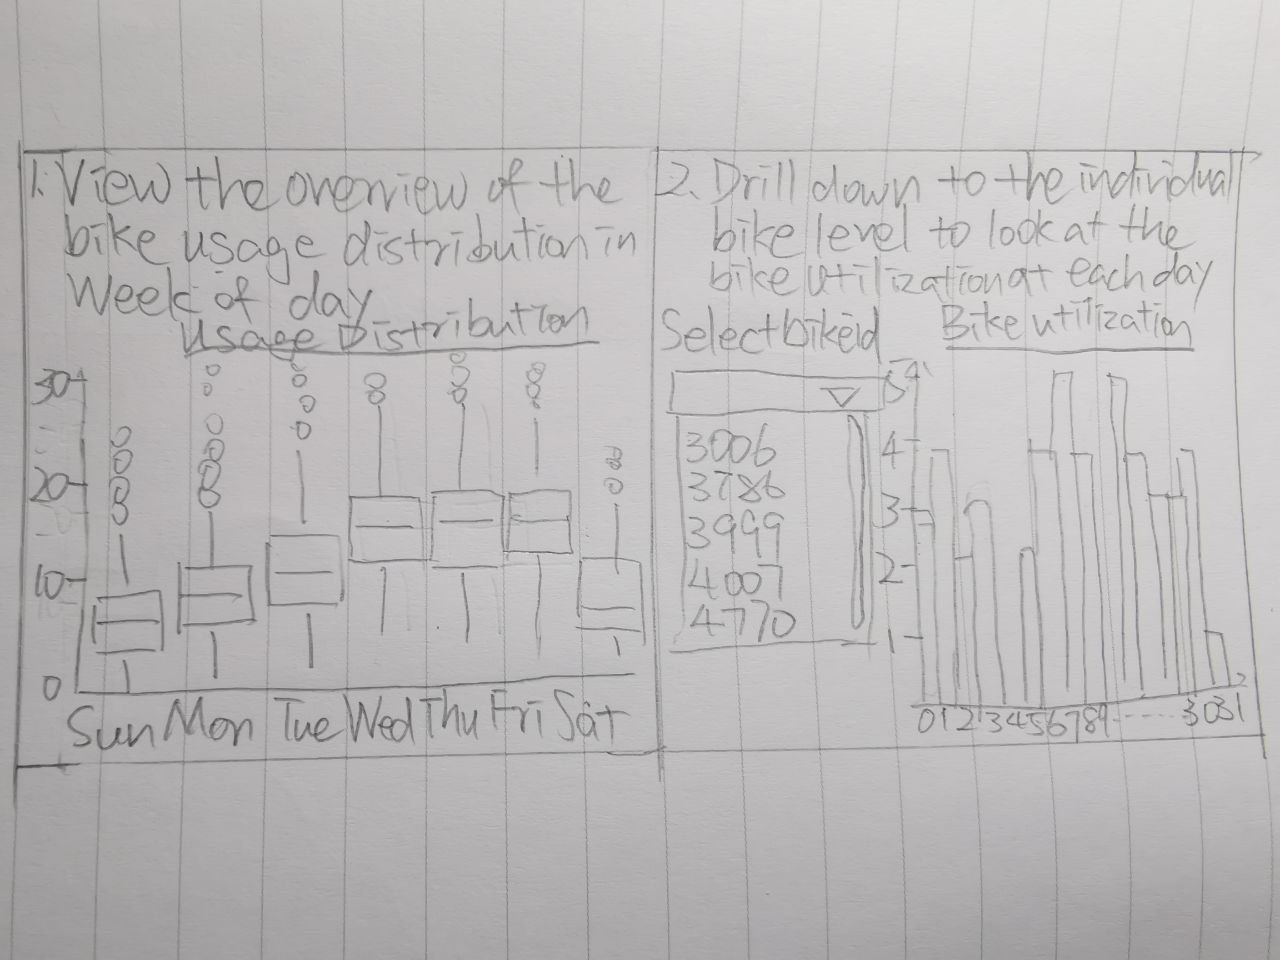 1. View the overview of the
bike usage distribution in
Week of day
Usage Distribution
30
20
10
0
Sun Mon Tue Wed Thu Fri Sat
2. Drill down to the individual
bike level to look at the
bike utilization at each day
Select bikeid
Bike utilization
3006
3786
3999
4007
4770
5
4
3
2
1
0 1 2 3 4 5 6 7 8 9 ...... 30 31